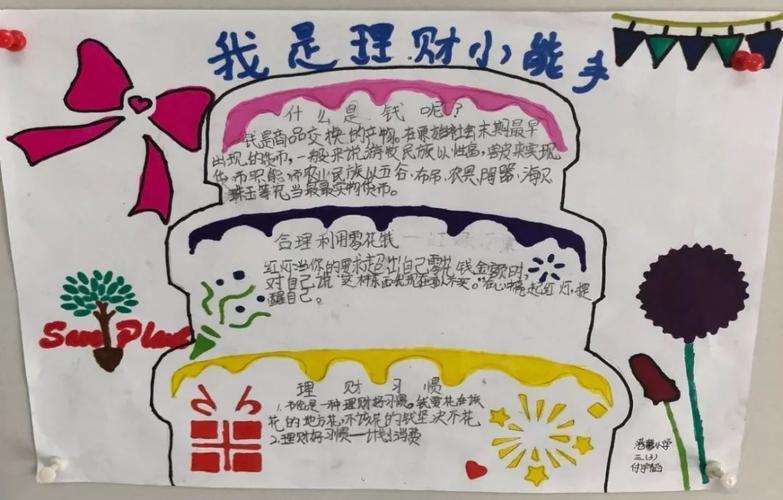 我是理财小能手
什么是钱呢？
钱是商品交换的产物。在原始社会末期最早
出现的货币，一般来说游牧民族以牲畜，兽皮来实现
货币职能，而农业民族以五谷、布帛、农具、陶器、海贝
珠玉等充当最早实物货币。
合理利用零花钱
红灯：当你的要求超出自己零花钱金额时，
对自己说“这种东西我现在可以不买。”在心中亮起红灯，提
醒自己。
Save Plant
理财习惯
1、节俭是一种理财好习惯。钱要花在该
花的地方花，不该花的钱坚决不花
2、理财好习惯——计划消费
小学
三、(3)